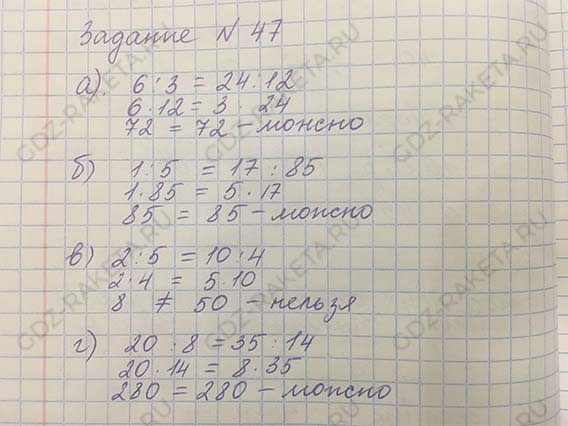 Задание N 47
а) 6 : 3 = 24 : 12
6 · 12 = 3 · 24
72 = 72 – можно
б) 1 : 5 = 17 : 85
1 · 85 = 5 · 17
85 = 85 – можно
в) 2 : 5 = 10 : 4
2 · 4 = 5 · 10
8 ≠ 50 – нельзя
г) 20 : 8 = 35 : 14
20 · 14 = 8 · 35
280 = 280 – можно
GDZ-RAKETA.RU
GDZ-RAKETA.RU
GDZ-RAKETA.RU
GDZ-RAKETA.RU
GDZ-RAKETA.RU
GDZ-RAKETA.RU